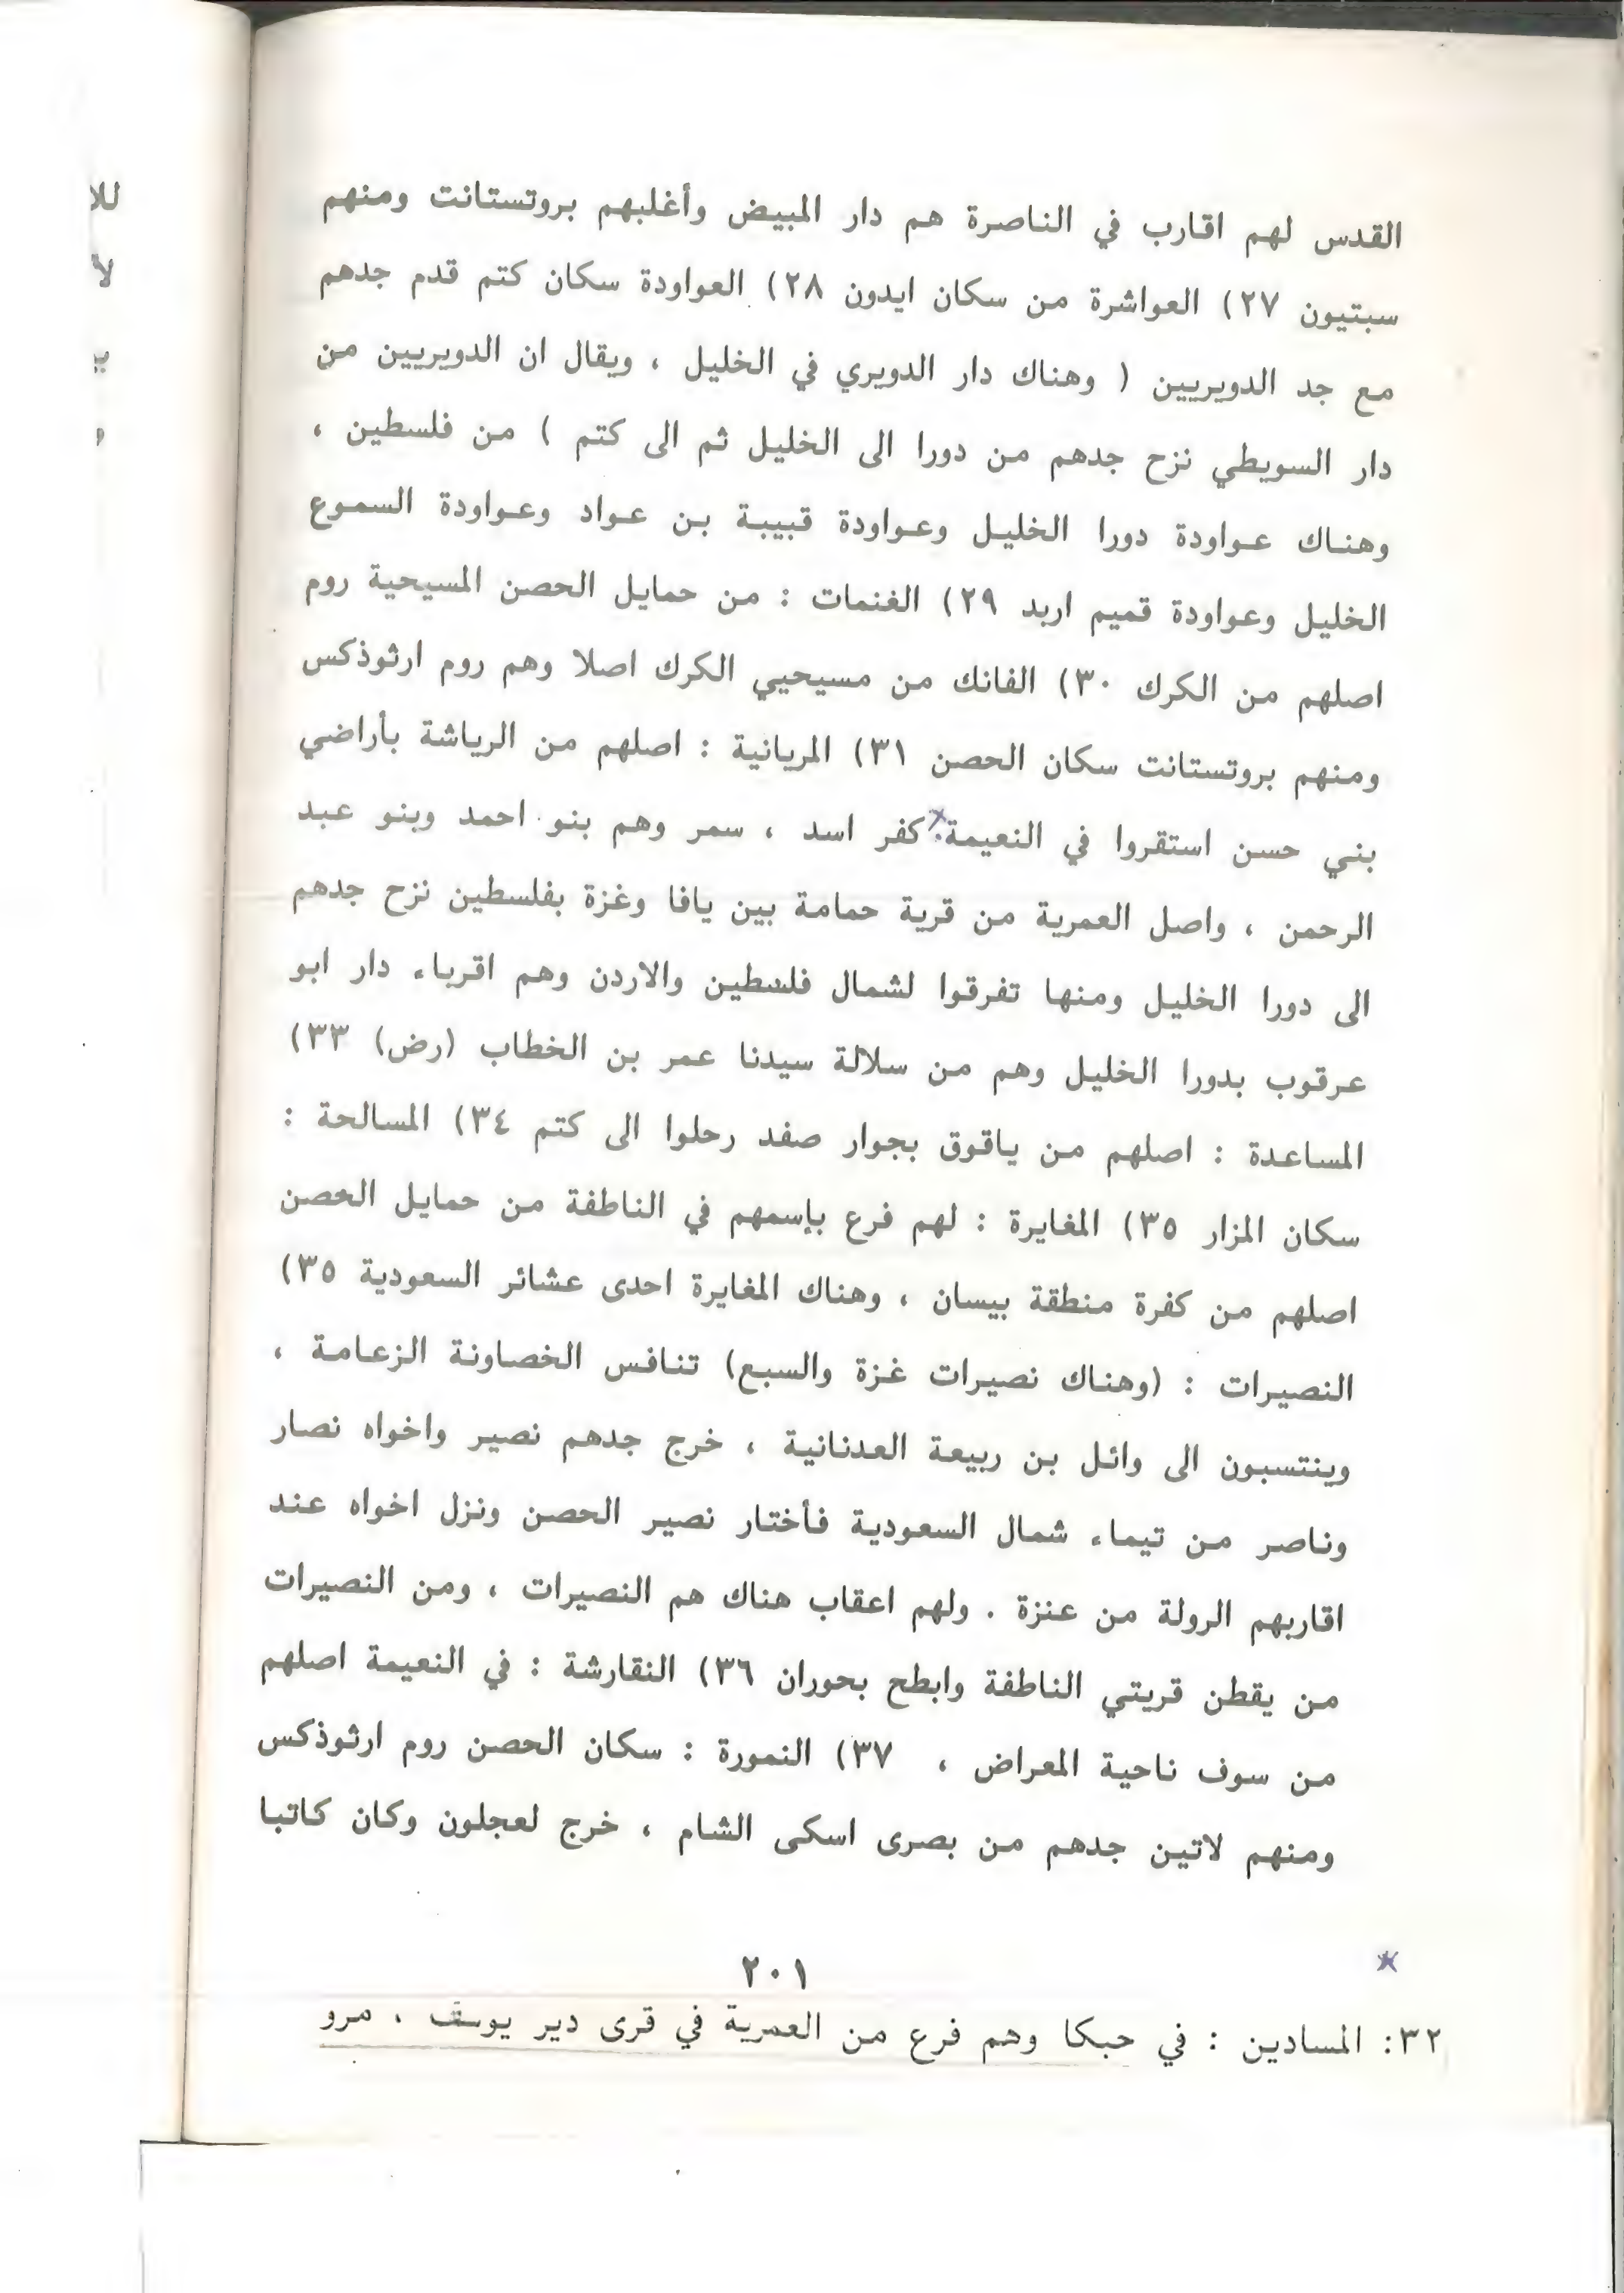 القدس لهم اقارب في الناصرة هم دار المبيض وأغلبهم بروتستانت ومنهم
سبتيون ٢٧) العواشرة من سكان ايدون ٢٨) العواودة سكان كتم قدم جدهم
مع جد الدويريين ( وهناك دار الدويري في الخليل ، ويقال ان الدويريين من
دار السويطي نزح جدهم من دورا الى الخليل ثم الى كتم ) من فلسطين ،
وهناك عواودة دورا الخليل وعواودة قبيبة بن عواد وعواودة السموع
الخليل وعواودة قميم اربد ٢٩) الغنمات : من حمايل الحصن المسيحية روم
اصلهم من الكرك ٣٠) الفانك من مسيحيي الكرك اصلا وهم روم ارثوذكس
ومنهم بروتستانت سكان الحصن ٣١) المريانية : اصلهم من الرياشة بأراضي
بني حسن استقروا في النعيمة.* كفر اسد ، سمر وهم بنو احمد وبنو عبد
الرحمن ، واصل العمرية من قرية حمامة بين يافا وغزة بفلسطين نزح جدهم
الى دورا الخليل ومنها تفرقوا لشمال فلسطين والاردن وهم اقرباء دار ابو
عرقوب بدورا الخليل وهم من سلالة سيدنا عمر بن الخطاب (رض) ٣٣)
المساعدة : اصلهم من ياقوق بجوار صفد رحلوا الى كتم ٣٤) المسالحة :
سكان المزار ٣٥) المغايرة : لهم فرع بإسمهم في الناطفة من حمايل الحصن
اصلهم من كفرة منطقة بيسان ، وهناك المغايرة احدى عشائر السعودية ٣٥)
النصيرات : (وهناك نصيرات غزة والسبع) تنافس الخصاونة الزعامة ،
وينتسبون الى وائل بن ربيعة العدنانية ، خرج جدهم نصير واخواه نصار
وناصر من تيماء شمال السعودية فأختار نصير الحصن ونزل اخواه عند
اقاربهم الرولة من عنزة . ولهم اعقاب هناك هم النصيرات ، ومن النصيرات
من يقطن قريتي الناطفة وابطح بحوران ٣٦) النقارشة : في النعيمة اصلهم
من سوف ناحية المعراض ، ٣٧) النمورة : سكان الحصن روم ارثوذكس
ومنهم لاتين جدهم من بصرى اسكى الشام ، خرج لعجلون وكان كاتبا
*
٢٠١
٣٢: المسادين : في حبكا وهم فرع من العمرية في قرى دير يوسف ، مرو